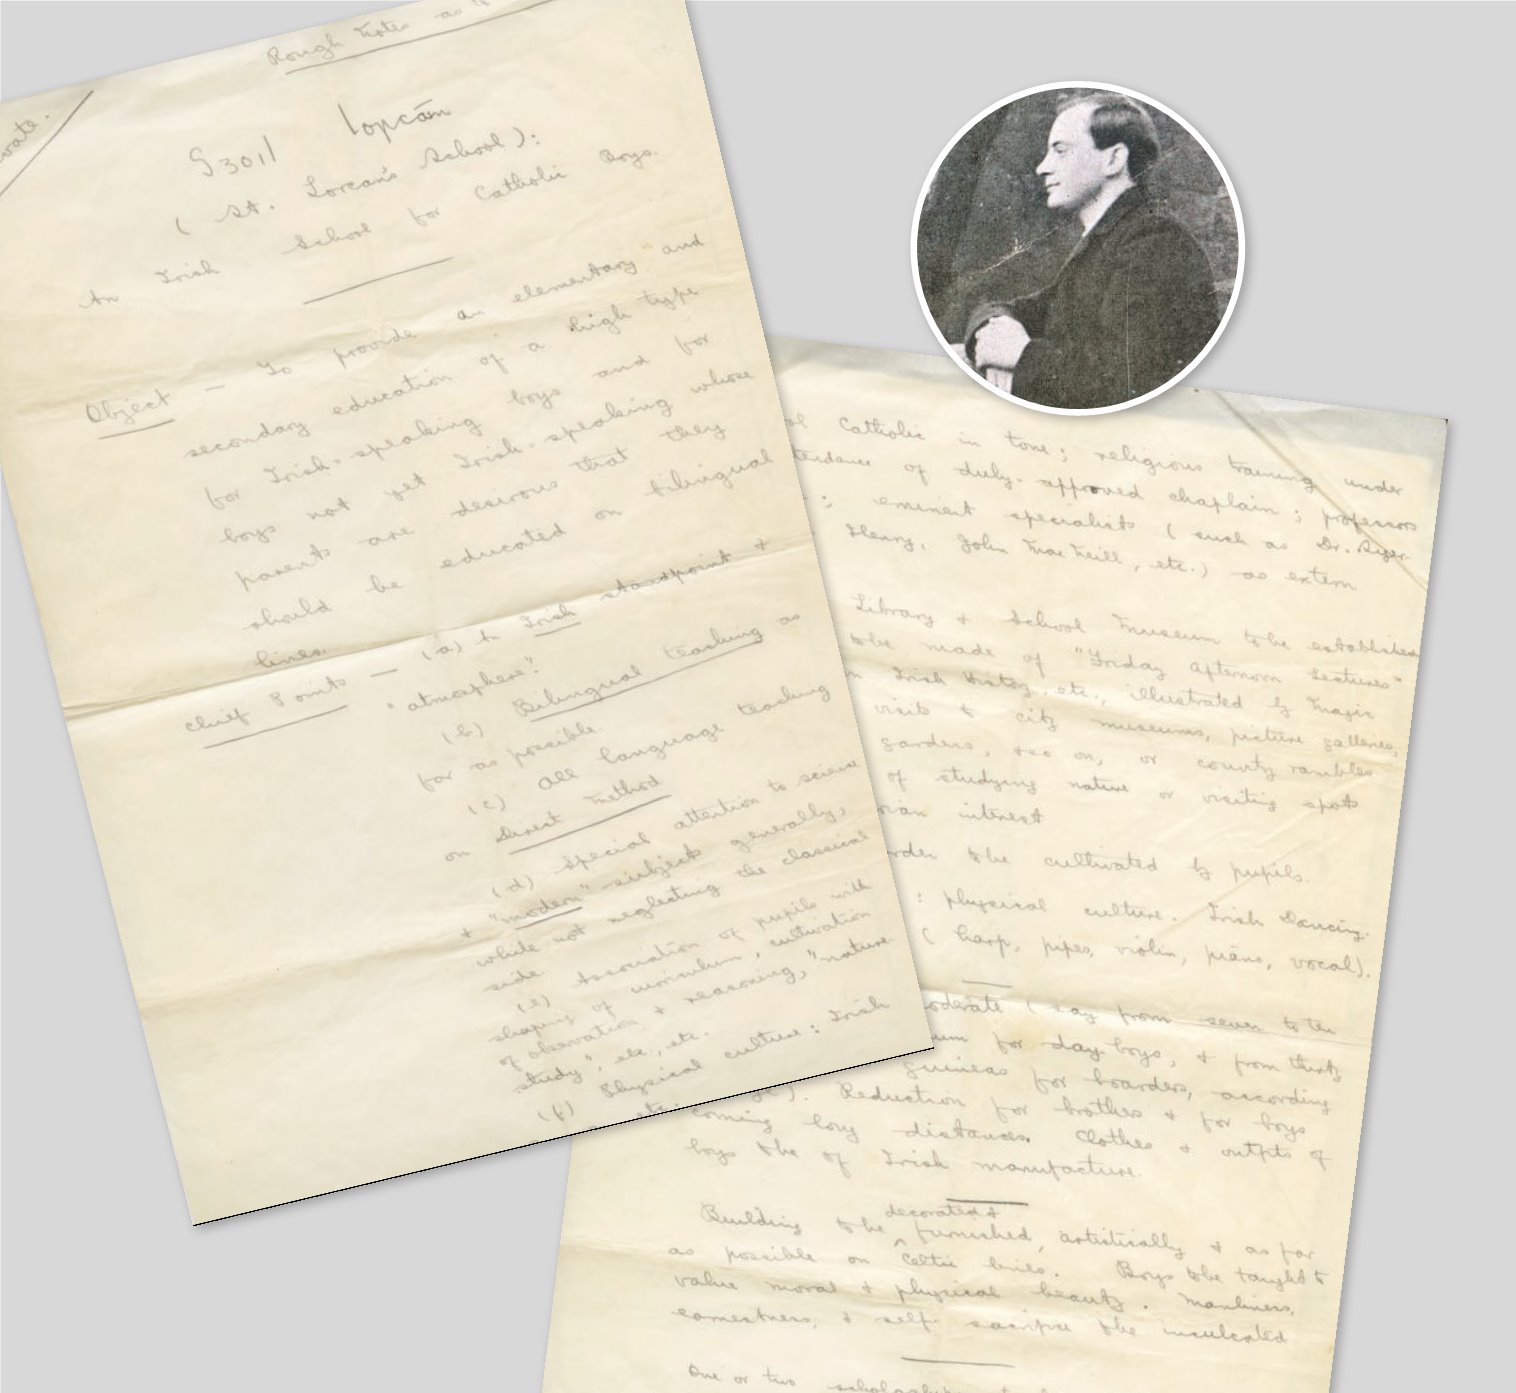 Rough Notes as
Private.
Sgoil Lorcáin
( St. Lorcan's School ):
An Irish School for Catholic Boys.
Object — To provide an elementary and
secondary education of a high type
for Irish-speaking boys and for
boys not yet Irish-speaking whose
parents are desirous that they
should be educated on bilingual
lines.
Chief Points — (a) An Irish standpoint &
"atmosphere".
(b) Bilingual teaching as
far as possible.
(c) All language teaching
on Direct Method
(d) Special attention to science
& "modern" subjects generally,
while not neglecting the classical
side
(e) Association of pupils with
shaping of curriculum, cultivation
of observation & reasoning, "nature-
study", etc., etc.
(f) Physical culture: Irish
Catholic in tone; religious training under
of duly-approved chaplain; professors
; eminent specialists (such as Dr.
Henry, John MacNeill, etc.) as extern
Library & School Museum to be established
to be made of "Friday Afternoon Lectures"
Irish History, etc., illustrated by Magic
visits to city museums, picture galleries,
gardens, & so on, or country rambles
of studying nature or visiting spots
interest
to be cultivated by pupils.
: physical culture. Irish Dancing.
( harp, pipes, violin, piano, vocal).
moderate (say from seven to ten
for day-boys, & from thirty
guineas for boarders, according
). Reduction for brothers & for boys
coming long distances. Clothes & outfits of
boys to be of Irish manufacture.
decorated &
Building to be furnished, artistically & as far
as possible on Celtic lines. Boys to be taught to
value moral & physical beauty. Manliness,
earnestness, & self-sacrifice to be inculcated
One or two